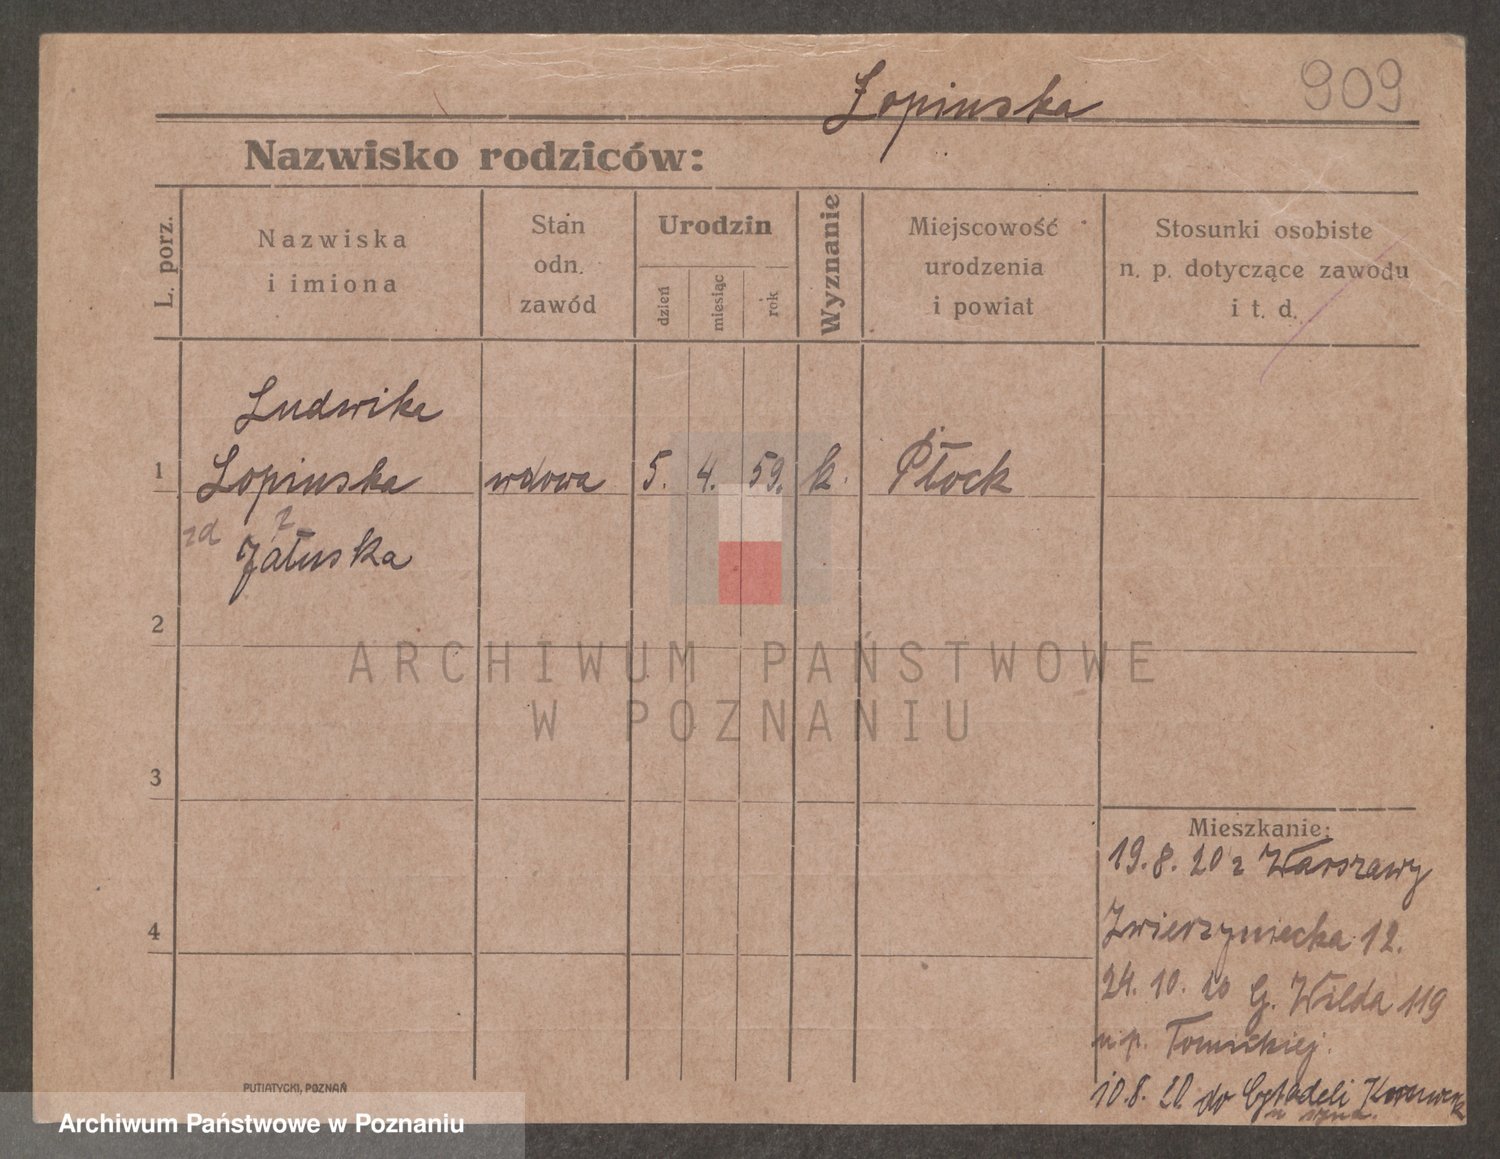 Łopinska
909
Nazwisko rodziców:
L. porz.
Nazwiska
i imiona
Stan
odn.
zawód
Urodzin
dzień
miesiąc
rok
Wyznanie
Miejscowość
urodzenia
i powiat
Stosunki osobiste
n. p. dotyczące zawodu
i t. d.
Ludwika
1 Łopinska wdowa 5. 4. 59. k. Płock
zd z
Załuska
2
ARCHIWUM PAŃSTWOWE
W POZNANIU
3
Mieszkanie:
19.8.20 z Warszawy
4 Zwierzyniecka 12.
24.10.20 G. Wilda 119
u p. Tomickiej.
10.8.20 do Cytadeli
u syna.
PUTIATYCKI, POZNAŃ
Archiwum Państwowe w Poznaniu